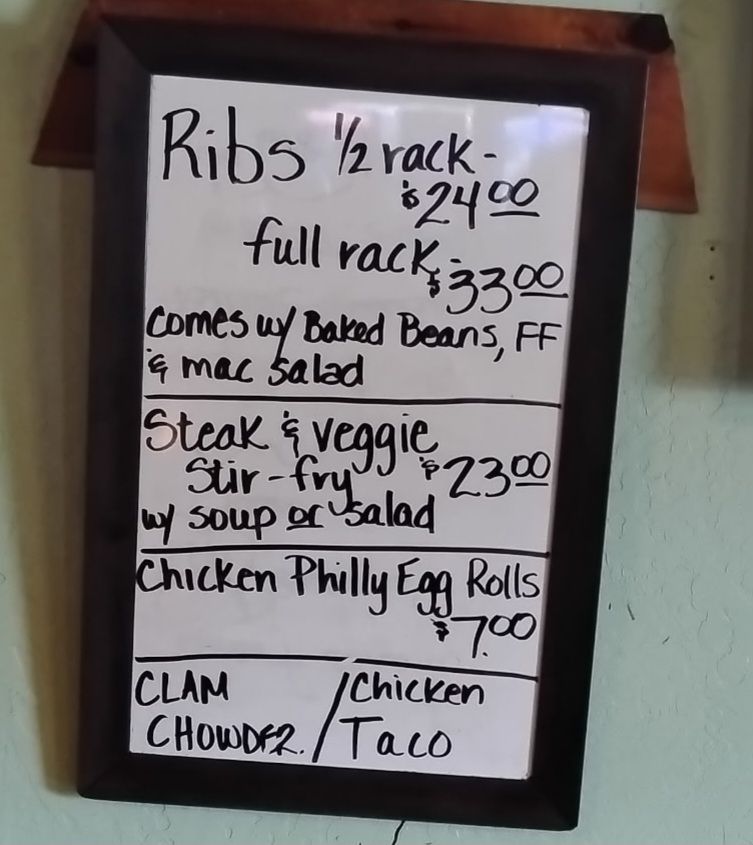 Ribs 1/2 rack -
$24.00
full rack -
$33.00
comes w/ Baked Beans, FF
& mac salad
Steak & veggie
Stir-fry $23.00
w/ soup or salad
Chicken Philly Egg Rolls
$7.00
CLAM / Chicken
CHOWDER. / Taco